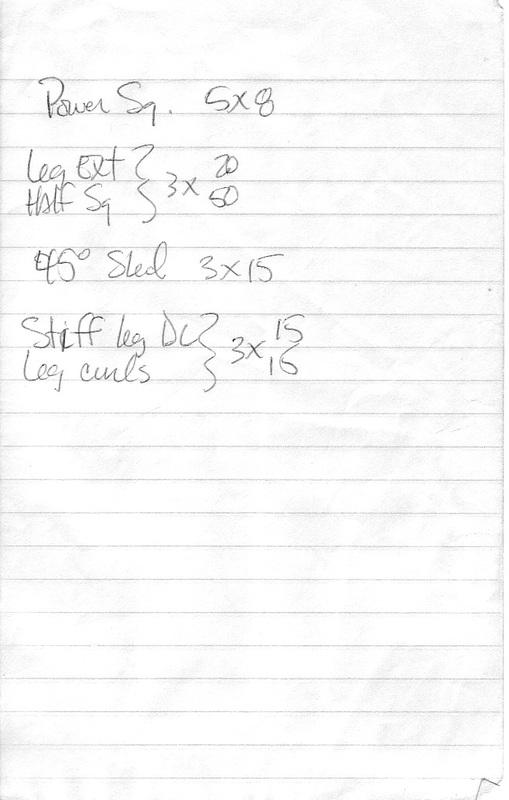 Power Sq. 5x8
Leg Ext } 3x 20
Half Sq } 50
45° Sled 3x15
Stiff leg DL } 3x 15
Leg curls } 15